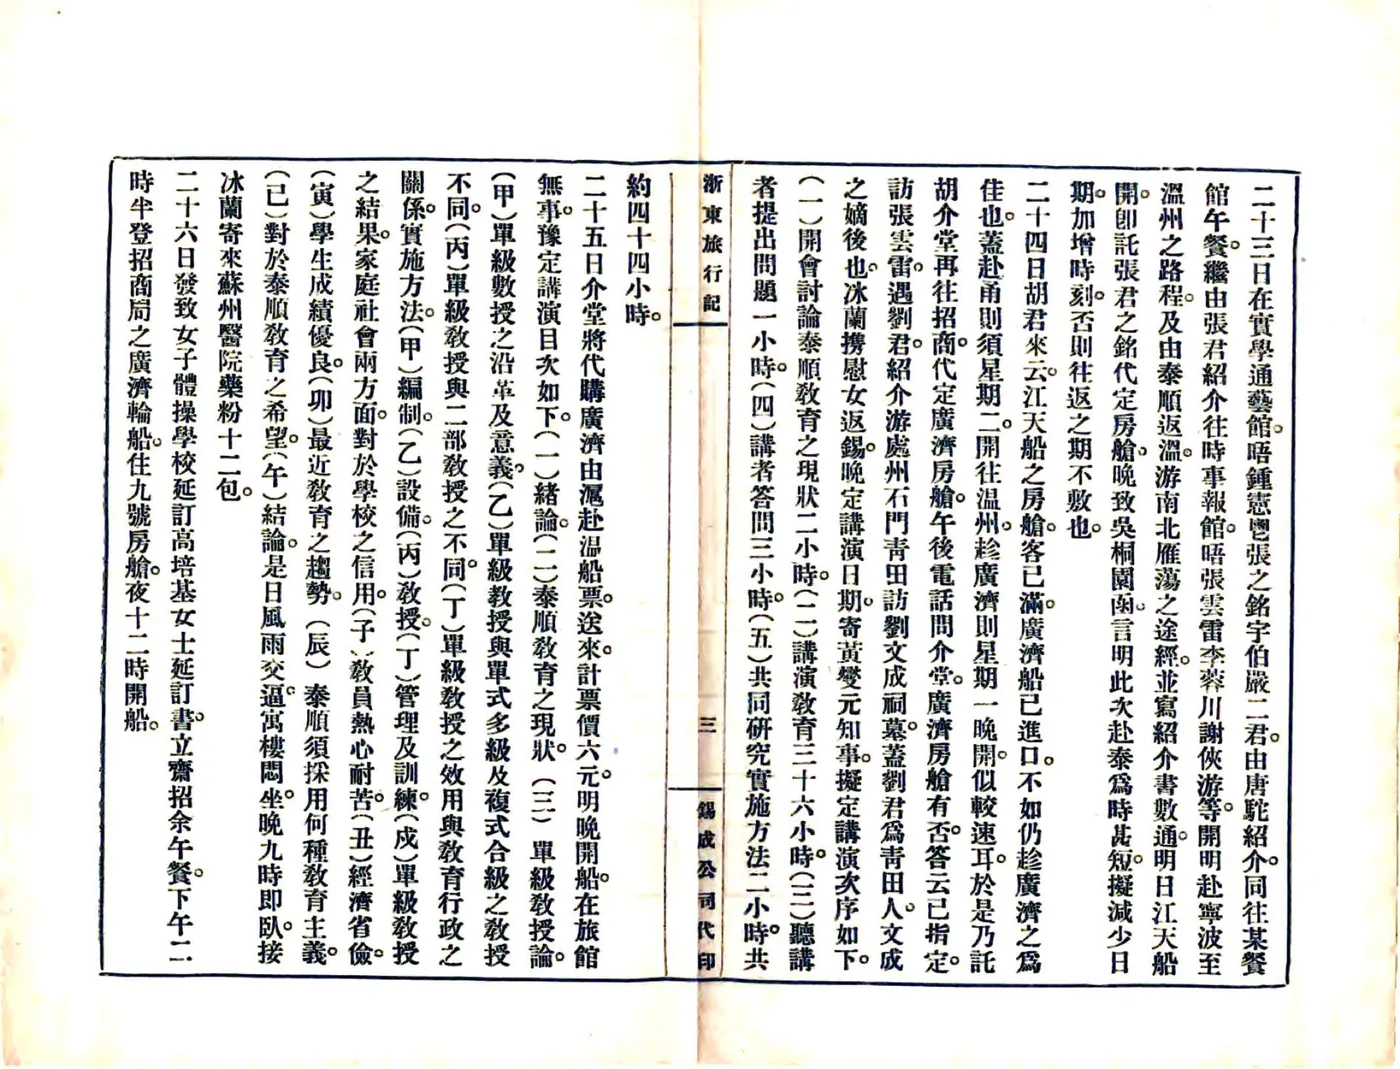 二十三日在實學通藝館。晤鍾憲鬯張之銘宇伯嚴二君。由唐駝紹介。同往某餐
館午餐。繼由張君紹介往時事報館。晤張雲雷李蓉川謝俠游等。開明赴寧波至
溫州之路程。及由泰順返溫。游南北雁蕩之途經。並寫紹介書數通。明日江天船
開。卽託張君之銘代定房艙。晚致吳桐園函。言明此次赴泰爲時甚短。擬減少日
期。加增時刻。否則往返之期不敷也。
二十四日胡君來云。江天船之房艙客已滿。廣濟船已進口。不如仍趁廣濟之爲
佳也。蓋赴甬則須星期二。開往温州。趁廣濟則星期一晚開。似較速耳。於是乃託
胡介堂再往招商。代定廣濟房艙。午後電話問介堂。廣濟房艙有否。答云已指定。
訪張雲雷。遇劉君。紹介游處州石門靑田訪劉文成祠墓。蓋劉君爲靑田人。文成
之嫡後也。冰蘭携慰女返錫。晚定講演日期。寄黃燮元知事。擬定講演次序如下。
(一)開會討論泰順敎育之現狀二小時。(二)講演敎育三十六小時。(三)聽講
者提出問題一小時。(四)講者答問三小時。(五)共同研究實施方法二小時。共
浙東旅行記
三
錫成公司代印
約四十四小時。
二十五日介堂將代購廣濟由滬赴温船票。送來。計票價六元。明晚開船。在旅館
無事。豫定講演目次如下。(一)緒論。(二)泰順敎育之現狀。(三)單級敎授論。
(甲)單級敎授之沿革及意義。(乙)單級敎授與單式多級及複式合級之敎授
不同。(丙)單級敎授與二部敎授之不同。(丁)單級敎授之效用與敎育行政之
關係。實施方法。(甲)編制。(乙)設備。(丙)敎授。(丁)管理及訓練。(戍)單級敎授
之結果。家庭社會兩方面。對於學校之信用。(子)敎員熱心耐苦。(丑)經濟省儉。
(寅)學生成績優良。(卯)最近敎育之趨勢。(辰)泰順須採用何種敎育主義。
(已)對於泰順敎育之希望。(午)結論。是日風雨交逼。寓樓悶坐。晚九時即臥。接
冰蘭寄來蘇州醫院藥粉十二包。
二十六日發致女子體操學校延訂高培基女士延訂書。立齋招余午餐。下午二
時半登招商局之廣濟輪船。住九號房艙。夜十二時開船。